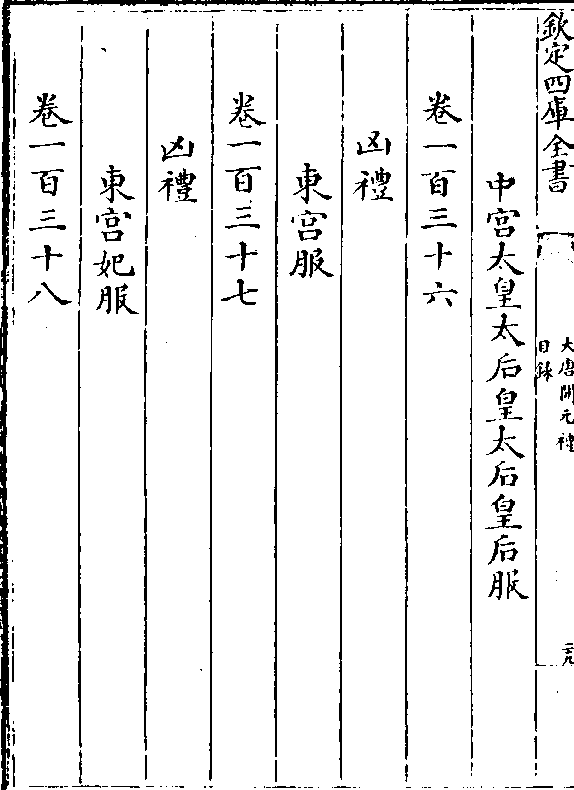 欽定四庫全書
大唐開元禮
目錄
二九
中宮太皇太后皇太后皇后服
卷一百三十六
凶禮
東宮服
卷一百三十七
凶禮
東宮妃服
卷一百三十八